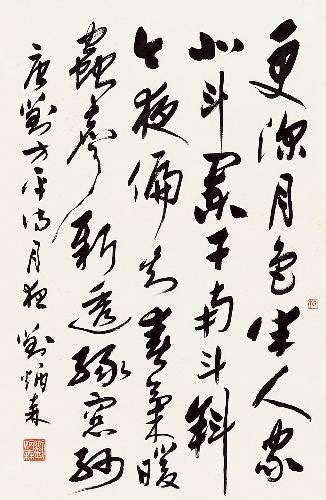 更深月色半人家
北斗闌干南斗斜
今夜偏知春氣暖
蟲聲新透綠窗紗
唐劉方平詩月夜 劉炳森